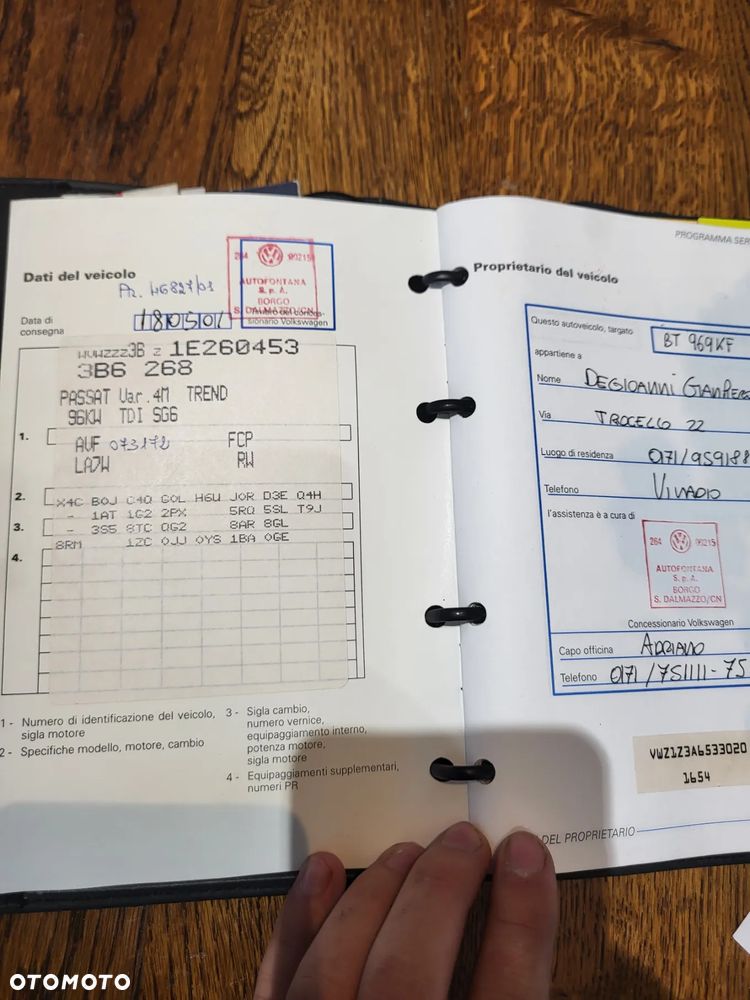 Dati del veicolo
Pr. 46827/01
264 00215
AUTOFONTANA
S.p.A.
BORGO
S. DALMAZZO/CN
Data di
consegna
180501
sionario Volkswagen
WVWZZZ3B Z 1E260453
3B6 268
PASSAT Var.4M TREND
96KW TDI SG6
1.
AVF 073172 FCP
LA7W RW
2.
X4C B0J C4Q G0L H6U J0R D3E Q4H
- 1AT 1G2 2PX 5RQ 5SL T9J
3.
- 3S5 8TC QG2 8AR 8GL
4.
8RM 1ZC 0JJ 0YS 1BA 0GE
1 - Numero di identificazione del veicolo,
sigla motore
2 - Specifiche modello, motore, cambio
3 - Sigla cambio,
numero vernice,
equipaggiamento interno,
potenza motore,
sigla motore
4 - Equipaggiamenti supplementari,
numeri PR
PROGRAMMA SER
Proprietario del veicolo
Questo autoveicolo, targato
BT 969KF
appartiene a
Nome DEGIOANNI GIANPIERO
Via TROCELLO 22
Luogo di residenza 0171/959188
Telefono VINADIO
l'assistenza è a cura di
264 00215
AUTOFONTANA
S.p.A.
BORGO
S. DALMAZZO/CN
Concessionario Volkswagen
Capo officina ADRIANO
Telefono 0171/751111-75
VWZ1Z3A6533020
1654
DEL PROPRIETARIO
OTOMOTO